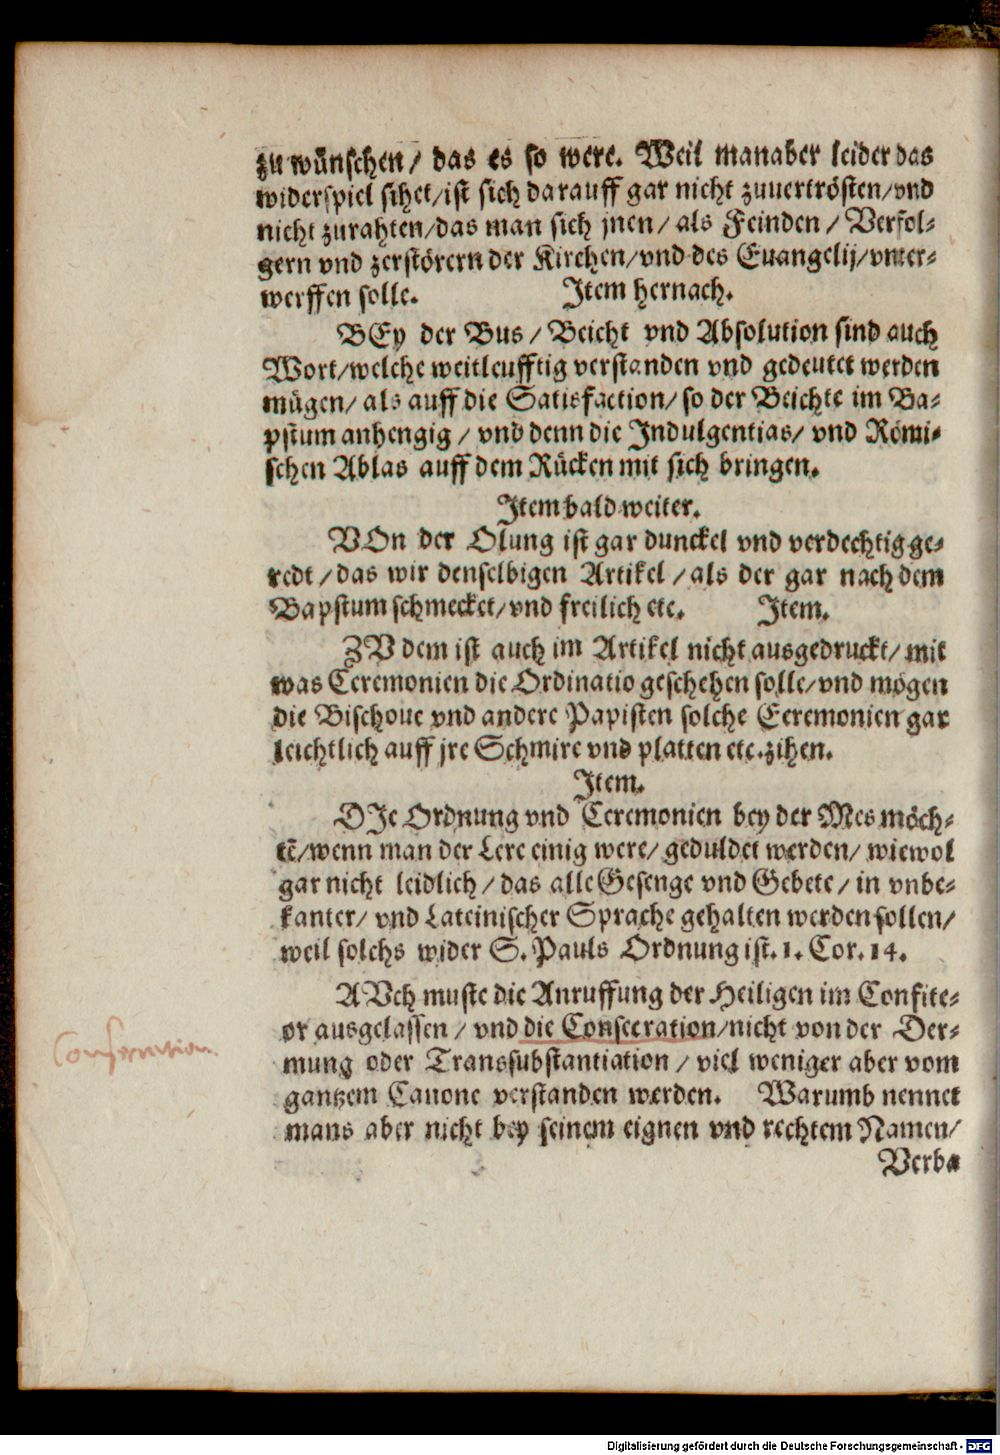 zu wünschen / das es so were. Weil man aber leider das
widerspiel sihet / ist sich darauff gar nicht zuuertrösten / vnd
nicht zurahten / das man sich jnen / als Feinden / Verfol-
gern vnd zerstörern der Kirchen / vnd des Euangelij / vnter-
werffen solle. Item hernach.
BEy der Bus / Beicht vnd Absolution sind auch
Wort / welche weitleufftig verstanden vnd gedeutet werden
mügen / als auff die Satisfaction / so der Beichte im Ba-
pstum anhengig / vnd denn die Indulgentias / vnd Römi-
schen Ablas auff dem Rücken mit sich bringen.
Item bald weiter.
VOn der Olung ist gar dunckel vnd verdechtig ge-
redt / das wir denselbigen Artikel / als der gar nach dem
Bapstum schmecket / vnd freilich etc. Item.
ZV dem ist auch im Artikel nicht ausgedruckt / mit
was Ceremonien die Ordinatio geschehen solle / vnd mögen
die Bischoue vnd andere Papisten solche Ceremonien gar
leichtlich auff jre Schmire vnd platten etc. zihen.
Item.
DIe Ordnung vnd Ceremonien bey der Mes möch-
tē / wenn man der Lere einig were / geduldet werden / wiewol
gar nicht leidlich / das alle Gesenge vnd Gebete / in vnbe-
kanter / vnd Lateinischer Sprache gehalten werden sollen /
weil solchs wider S. Pauls Ordnung ist. 1. Cor. 14.
AVch muste die Anruffung der Heiligen im Confite-
or ausgelassen / vnd die Consecration / nicht von der Der-
mung oder Transsubstantiation / viel weniger aber vom
gantzem Canone verstanden werden. Warumb nennet
mans aber nicht bey seinem eignen vnd rechtem Namen /
Verba
Consecration.
Digitalisierung gefördert durch die Deutsche Forschungsgemeinschaft - DFG